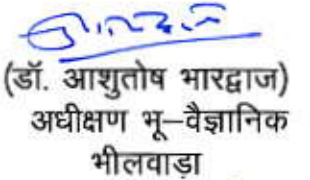 (डॉ. आशुतोष भारद्वाज)
अधीक्षण भू–वैज्ञानिक
भीलवाड़ा